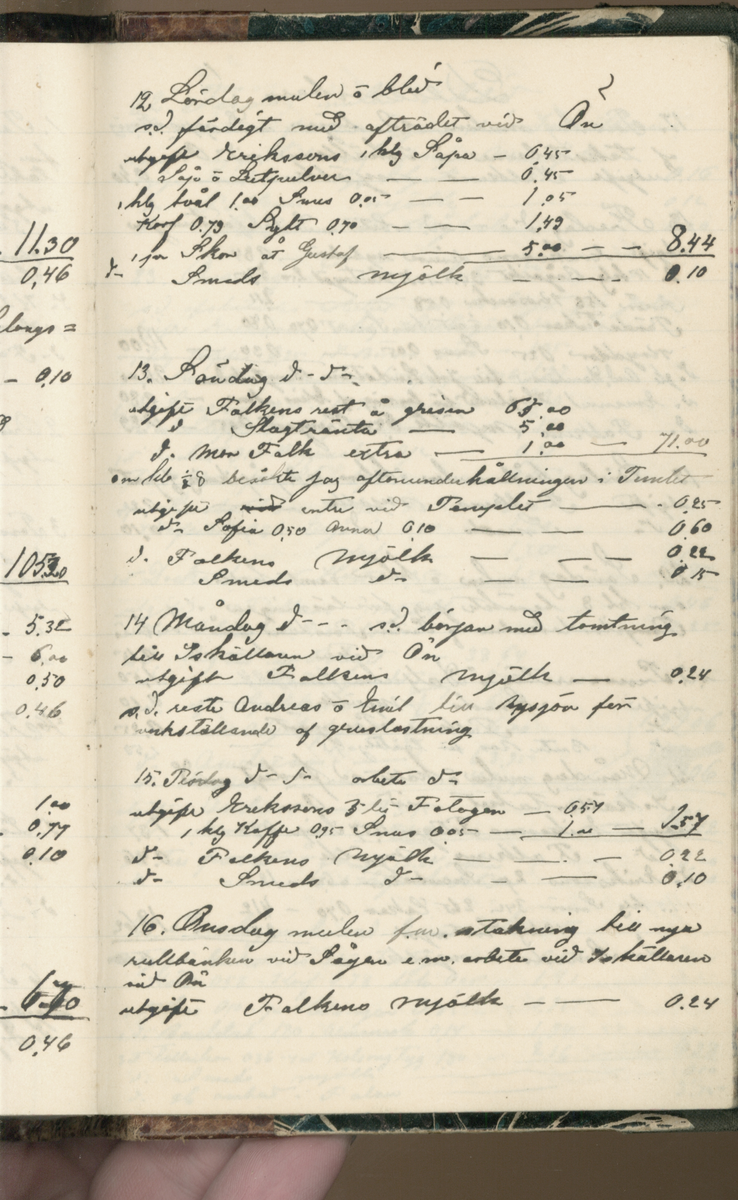 11.30
0,46
longs=
- 0,10
105,20
- 5.32
- 6,00
0,50
0,46
1,00
0,77
0,10
0,46
12 Lördag mulen o blid
s.d. färdigt med afträdet vid Ön
utgift Erikssons 1 klg Såpa - 0,45
Soja o Lutpulver — — 0,45
1 klg tvål 1.00 Snus 0,05 - — 1,05
Korf 0.79 Sylt 0,70 - — 1,49
1 par Skor åt Gustaf — 5.00 — - 8.44
d- Smeds mjölk — — — 0.10
13. Söndag d- d-
utgift Falkens rest å grisen 65,00
d Slagtränta — 5,00
d. Mor Falk extra — 1,00 — 71.00
om kl 1/2 8 besökte jag aftonunderhållningen i Templet
utgift entre vid Templet — 0,25
d- Sofia 0,50 Anna 0,10 — — 0,60
d. Falkens Mjölk — — 0,22
Smeds d- — — 0,15
14 Måndag d- - - s.d. början med tomtning
till Iskällaren vid Ön
utgift Falkens mjölk — 0,24
s.d. reste Andreas o Emil till Rysjön för
verkställande af gruslastning
15. Tisdag d- d- arbete d-
utgift Erikssons 3 lit Fotogen — 0,57
1 klg Kaffe 0,95 Snus 0,05 — 1,00 — 1.57
d- Falkens Mjölk — . — 0,22
d- Smeds d- — — 0,10
16. Onsdag mulen f.m. stakning till nya
rullbänken vid Sågen e.m. arbete vid Iskällaren
vid Ön
utgift Falkens Mjölk — — 0.24